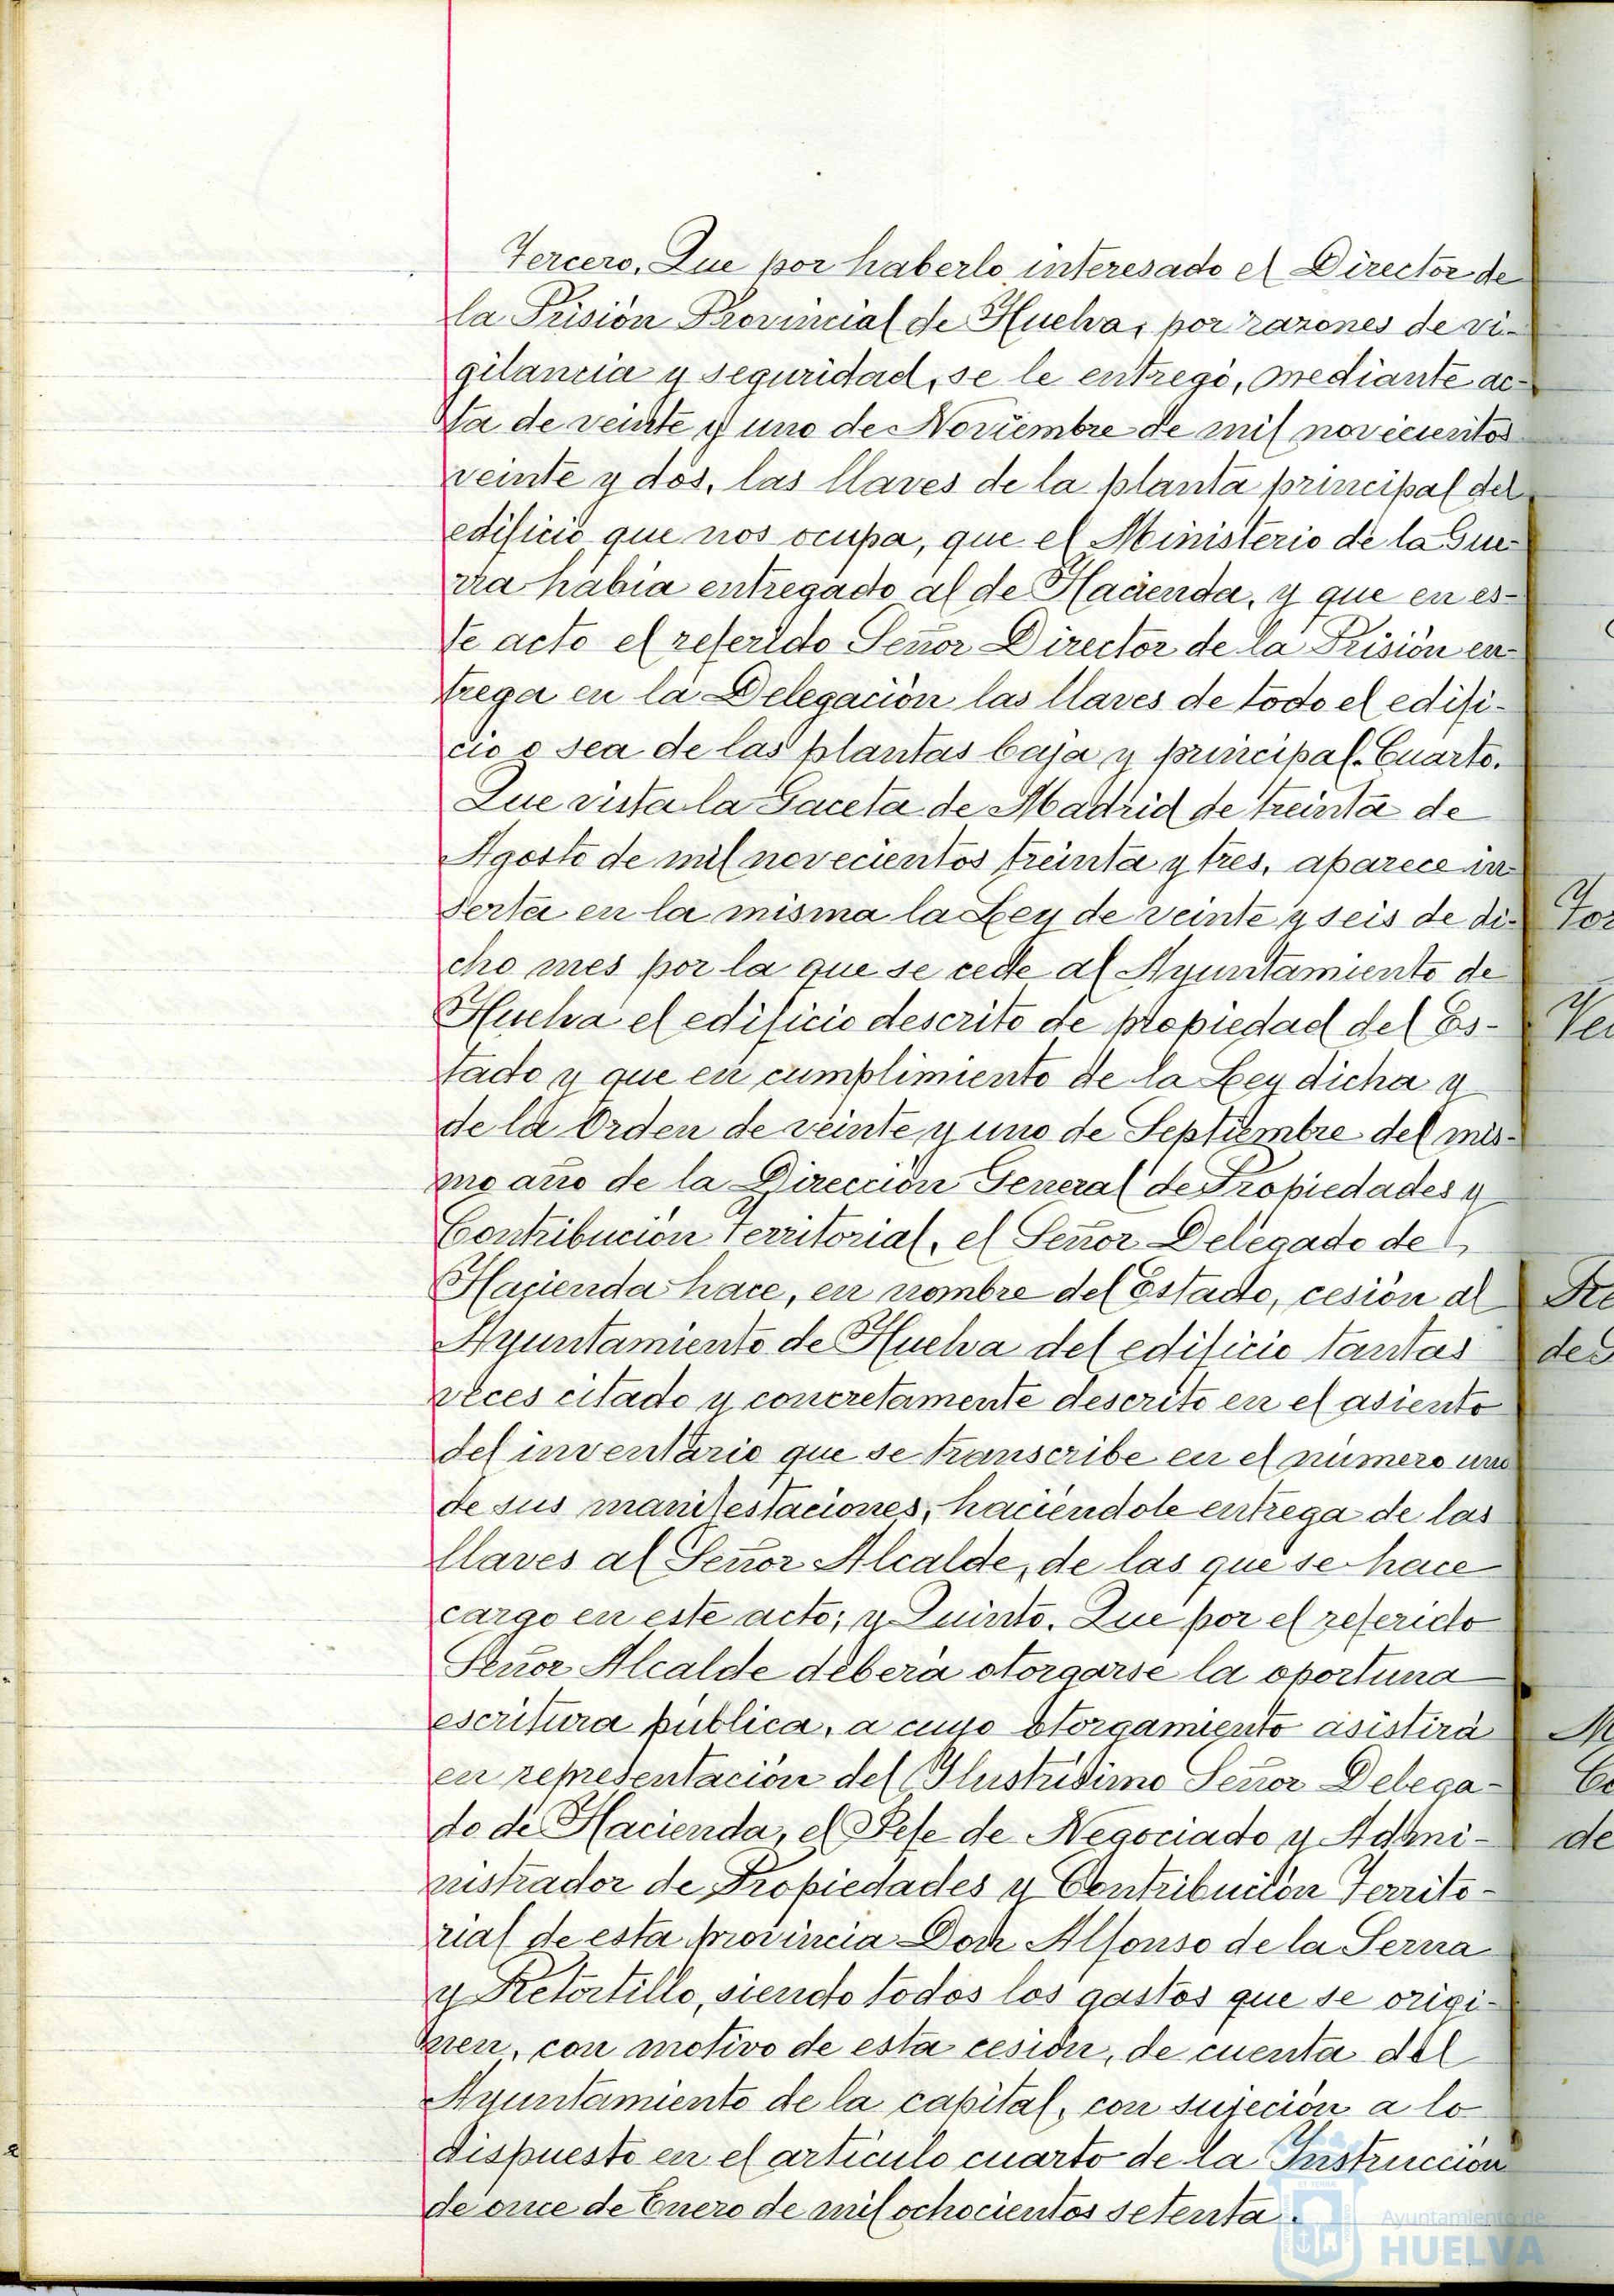 Tercero. Que por haberlo interesado el Director de
la Prisión Provincial de Huelva, por razones de vi-
gilancia y seguridad, se le entregó, mediante ac-
ta de veinte y uno de Noviembre de mil novecientos
veinte y dos, las llaves de la planta principal del
edificio que nos ocupa, que el Ministerio de la Gue-
rra habia entregado al de Hacienda, y que en es-
te acto el referido Señor Director de la Prisión en-
trega en la Delegación las llaves de todo el edifi-
cio o sea de las plantas baja y principal. Cuarto.
Que vista la Gaceta de Madrid de treinta de
Agosto de mil novecientos treinta y tres, aparece in-
serta en la misma la Ley de veinte y seis de di-
cho mes por la que se cede al Ayuntamiento de
Huelva el edificio descrito de propiedad del Es-
tado y que en cumplimiento de la Ley dicha y
de la Orden de veinte y uno de Septiembre del mis-
mo año de la Dirección General de Propiedades y
Contribución Territorial, el Señor Delegado de
Hacienda hace, en nombre del Estado, cesión al
Ayuntamiento de Huelva del edificio tantas
veces citado y concretamente descrito en el asiento
del inventario que se transcribe en el número uno
de sus manifestaciones, haciéndole entrega de las
llaves al Señor Alcalde, de las que se hace
cargo en este acto; y Quinto. Que por el referido
Señor Alcalde deberá otorgarse la oportuna
escritura pública, a cuyo otorgamiento asistirá
en representación del Ilustrisimo Señor Delega-
do de Hacienda, el Jefe de Negociado y Admi-
nistrador de Propiedades y Contribución Territo-
rial de esta provincia Don Alfonso de la Serna
y Retortillo, siendo todos los gastos que se origi-
nen, con motivo de esta cesión, de cuenta del
Ayuntamiento de la capital, con sujeción a lo
dispuesto en el articulo cuarto de la Instrucción
de once de Enero de mil ochocientos setenta.
Ayuntamiento de
HUELVA